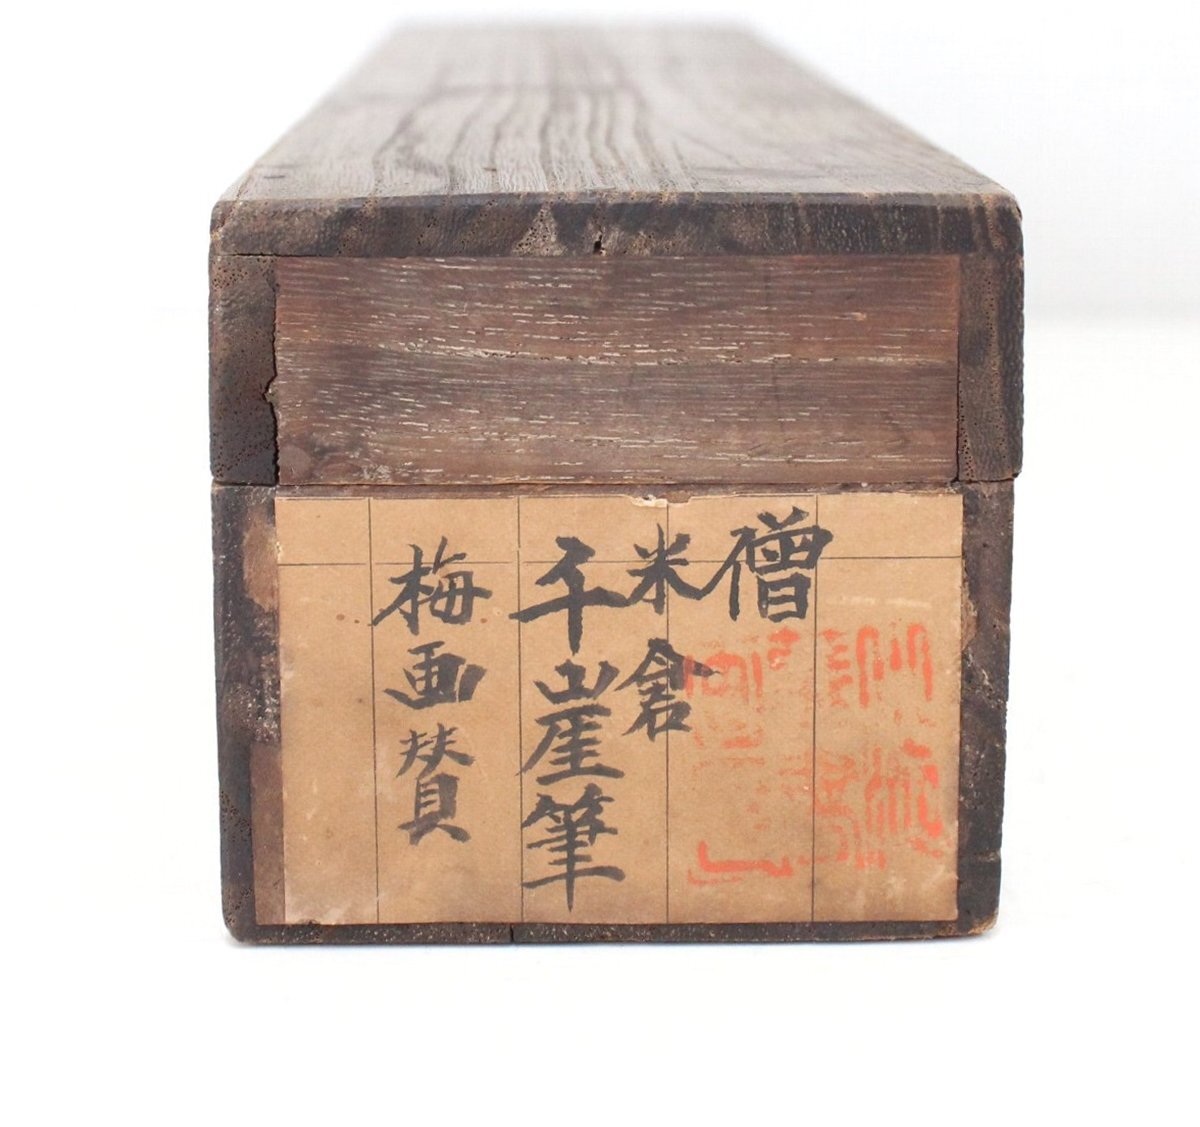 僧
米倉
千崖筆
梅画賛